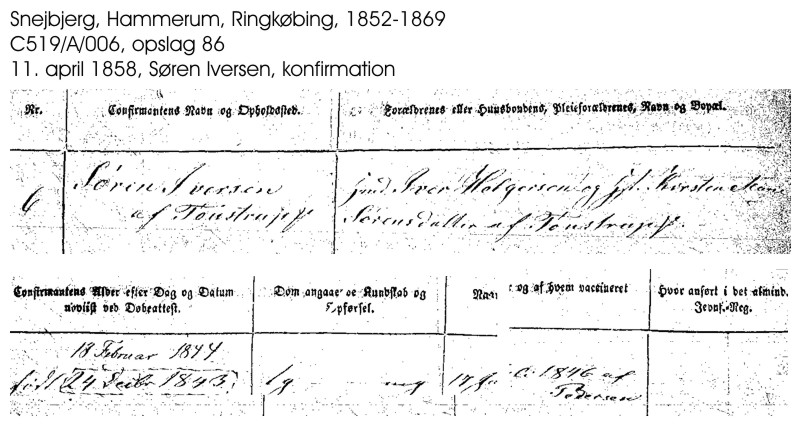 Snejbjerg, Hammerum, Ringkøbing, 1852-1869
C519/A/006, opslag 86
11. april 1858, Søren Iversen, konfirmation
Nr.
Confirmantens Navn og Opholdssted.
Forældrenes eller Huusbondens, Pleieforældrenes, Navn og Bopæl.
6
Søren Iversen
af Tonstrup
Iver Holgersen og Kirsten
Sørensdatter af Tonstrup.
Confirmantens Alder efter Dag og Datum
udviist ved Døbeattest.
Dom angaaende Kundskab og
Opførsel.
og af hvem vaccineret
Hvor anført i det almind.
Jevnf.-Reg.
18 Februar 1844
født 24 Decbr 1843.
mg
1846 af
Pedersen